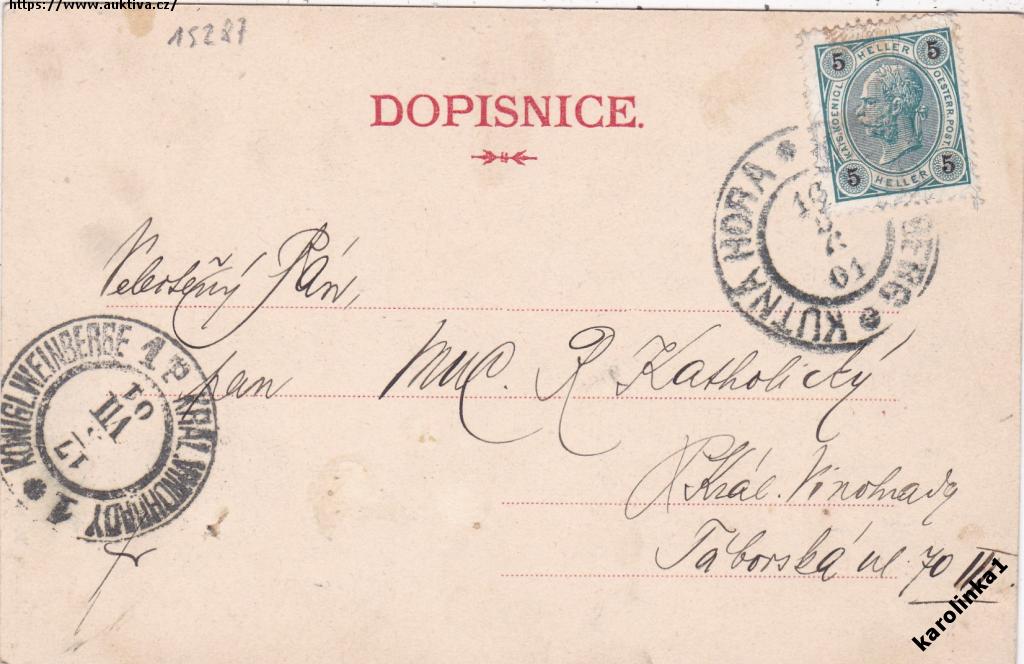 https://www.auktiva.cz/
15287
DOPISNICE.
5 HELLER 5
KAIS. KOENIGL. OESTERR. POST
5 HELLER 5
KUTNÁ HORA BERG
01
Velectěný Pán,
pan MUC. R Katholický
Král. Vinohrady
Táborská ul 70 III.
KÖNIGL. WEINBERGE 1 KRÁL. VINOHRADY 1
17
VII
01
karolinka1